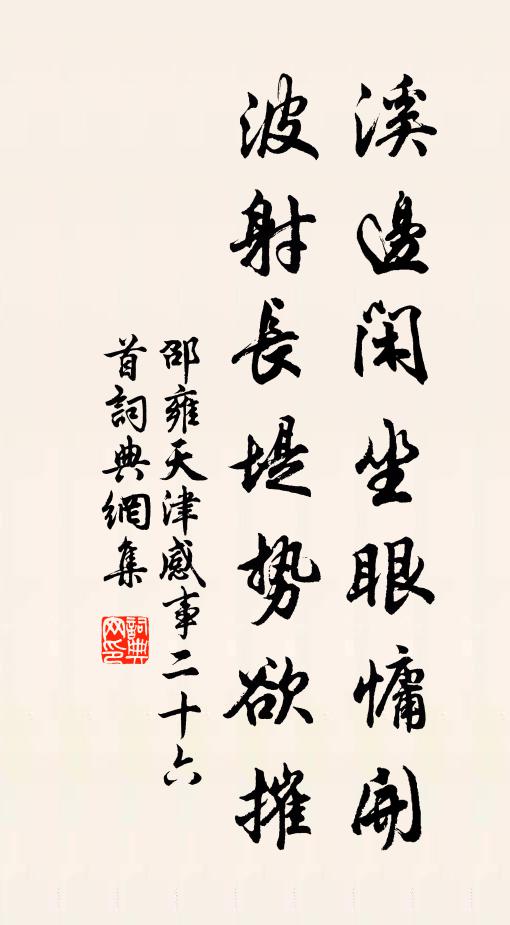 溪邊閑坐眼慵開
波射長堤势欲摧
邵雍天津感事二十六
首詞典網集
詞典
网印